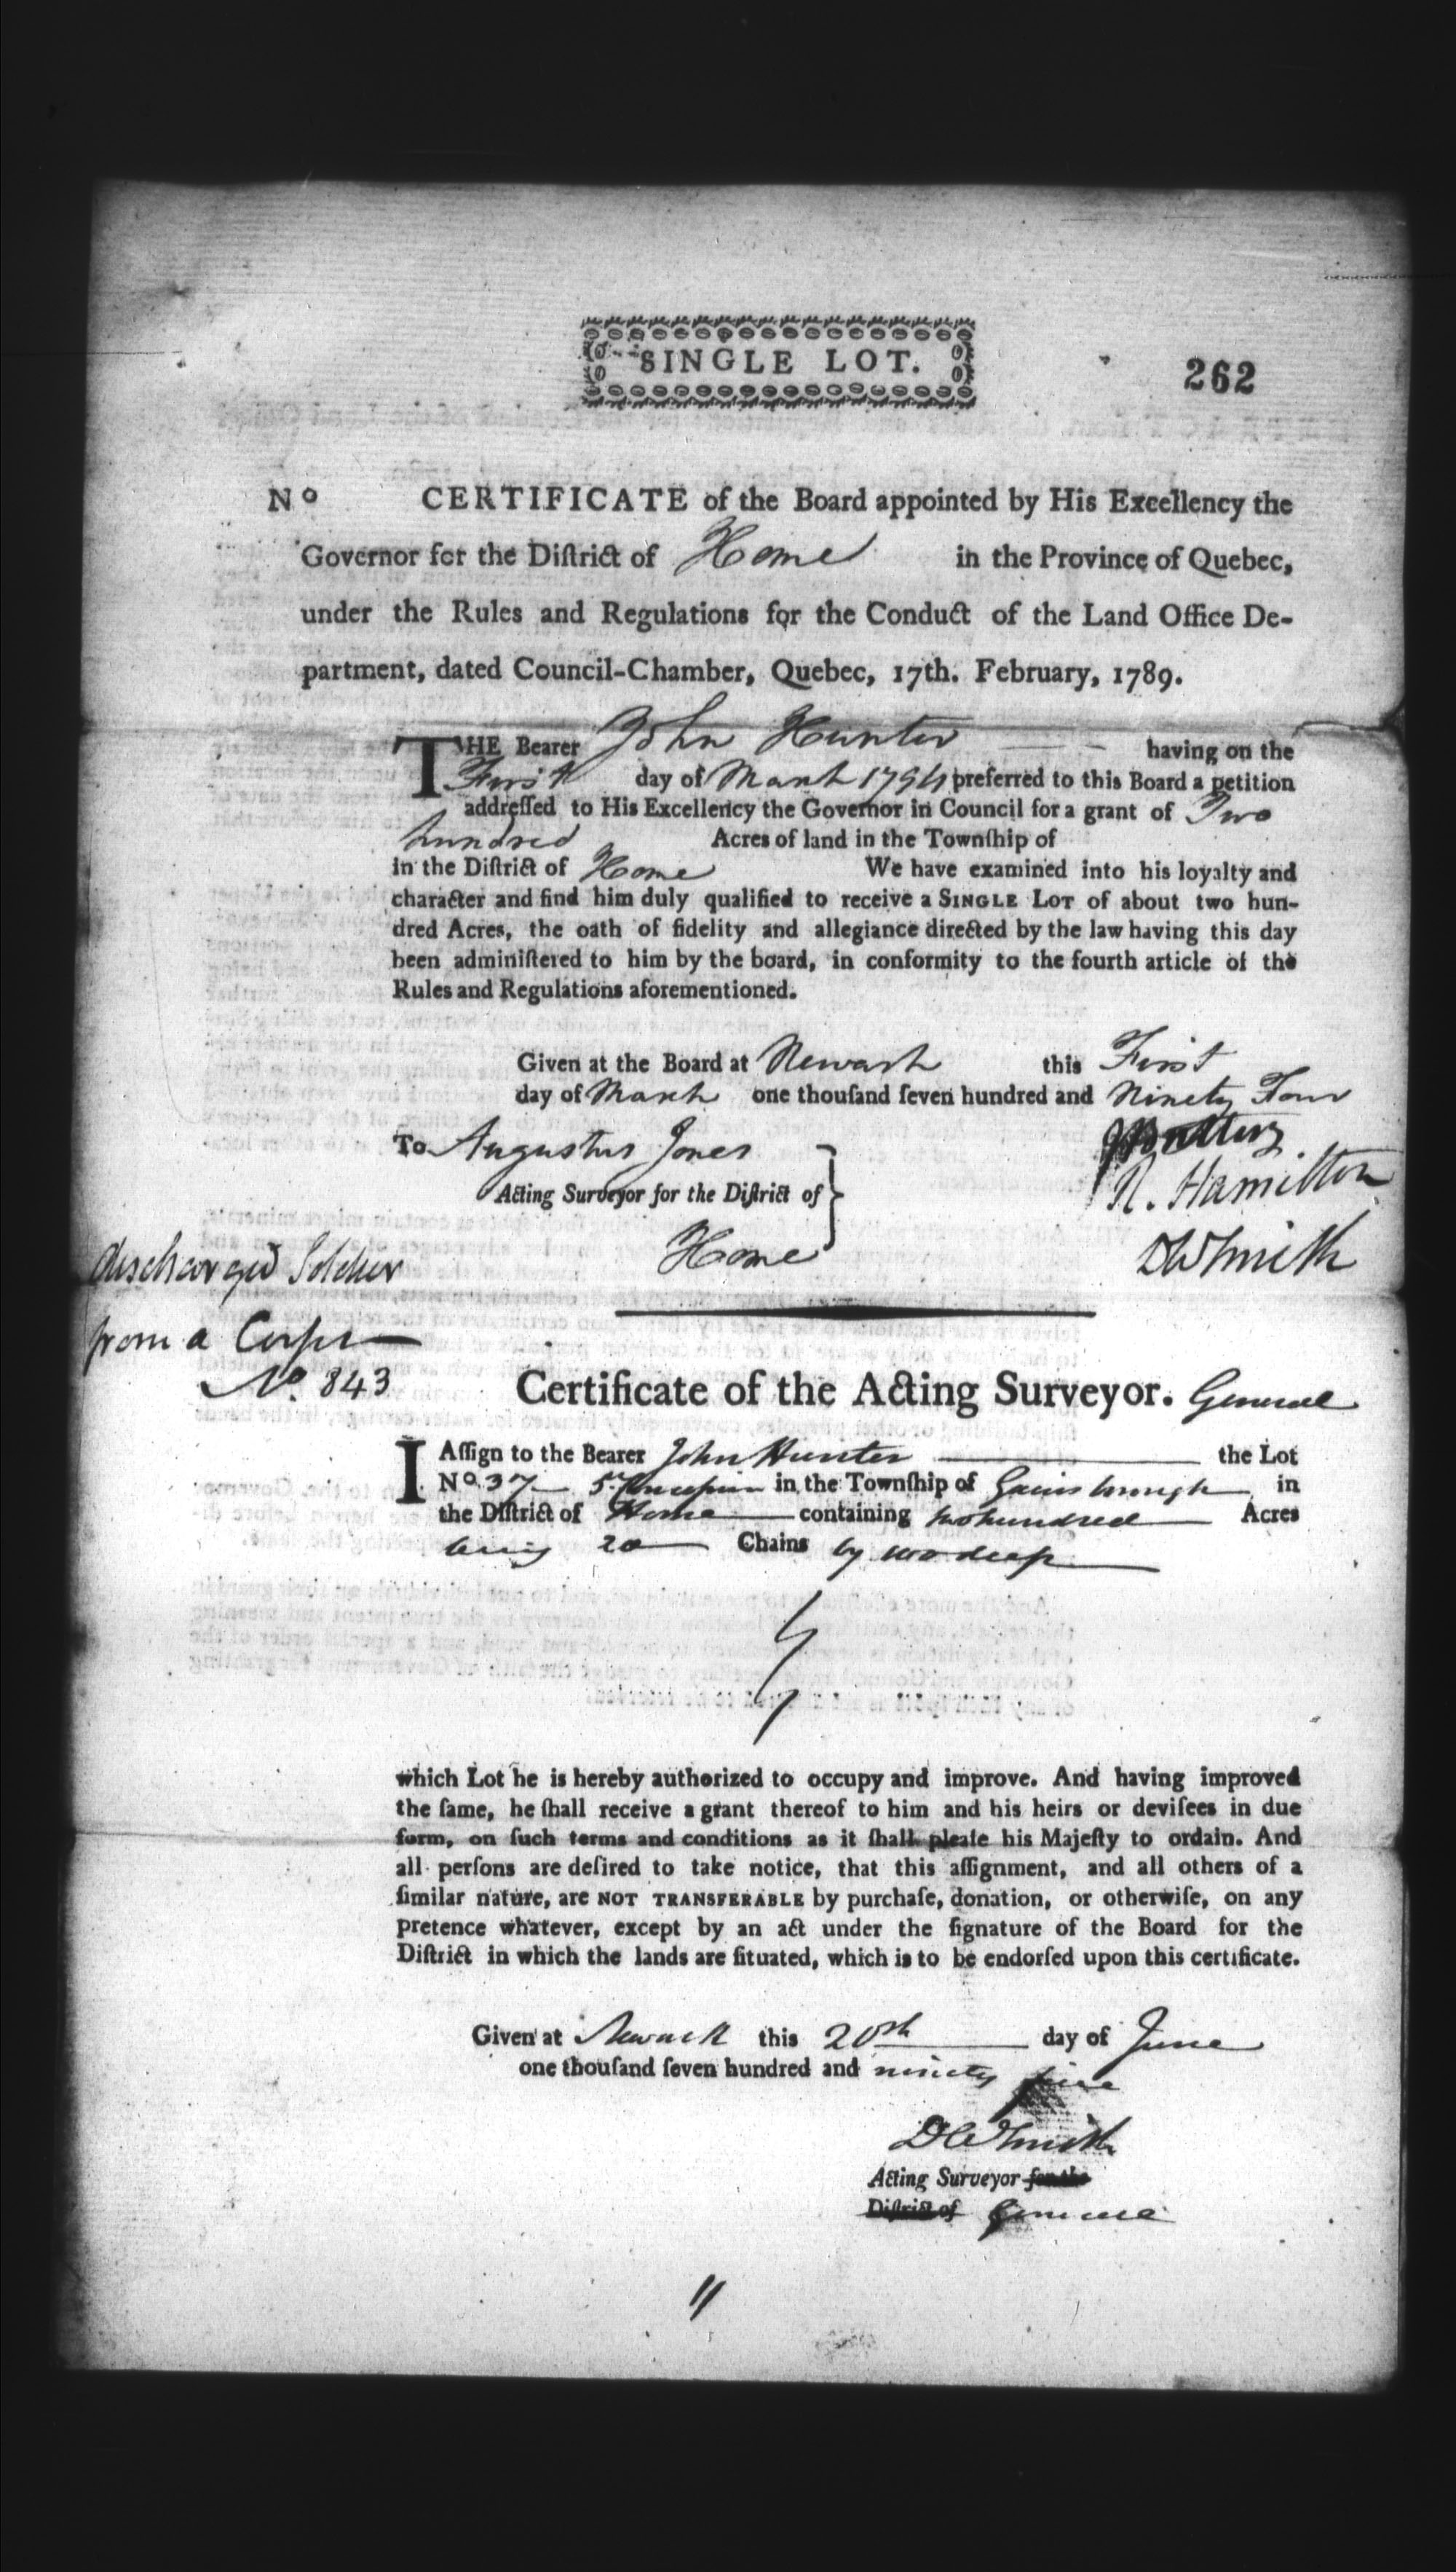 SINGLE LOT.
262
No CERTIFICATE of the Board appointed by His Excellency the
Governor for the Diſtrict of Home in the Province of Quebec,
under the Rules and Regulations for the Conduct of the Land Office De-
partment, dated Council-Chamber, Quebec, 17th. February, 1789.
THE Bearer John Hunter having on the
First day of March 1794 preferred to this Board a petition
addreſſed to His Excellency the Governor in Council for a grant of Two
hundred Acres of land in the Townſhip of
in the Diſtrict of Home We have examined into his loyalty and
character and find him duly qualified to receive a SINGLE LOT of about two hun-
dred Acres, the oath of fidelity and allegiance directed by the law having this day
been adminiſtered to him by the board, in conformity to the fourth article of the
Rules and Regulations aforementioned.
Given at the Board at Newark this First
day of March one thouſand ſeven hundred and Ninety Four
To Augustus Jones
Acting Surveyor for the Diſtrict of
Home
R. Hamilton
DWSmith
discharged Soldier
from a Corps
No. 843
Certificate of the Acting Surveyor. General
I Aſſign to the Bearer John Hunter the Lot
No 37 5 Concession in the Townſhip of Gainsborough in
the Diſtrict of Home containing two hundred Acres
being 20 Chains by 100 deep
which Lot he is hereby authorized to occupy and improve. And having improved
the ſame, he ſhall receive a grant thereof to him and his heirs or deviſees in due
form, on ſuch terms and conditions as it ſhall pleaſe his Majeſty to ordain. And
all perſons are deſired to take notice, that this aſſignment, and all others of a
ſimilar nature, are NOT TRANSFERABLE by purchaſe, donation, or otherwiſe, on any
pretence whatever, except by an act under the ſignature of the Board for the
Diſtrict in which the lands are ſituated, which is to be endorſed upon this certificate.
Given at Newark this 20th day of June
one thouſand ſeven hundred and ninety five
DWSmith
Acting Surveyor for the
Diſtrict of General